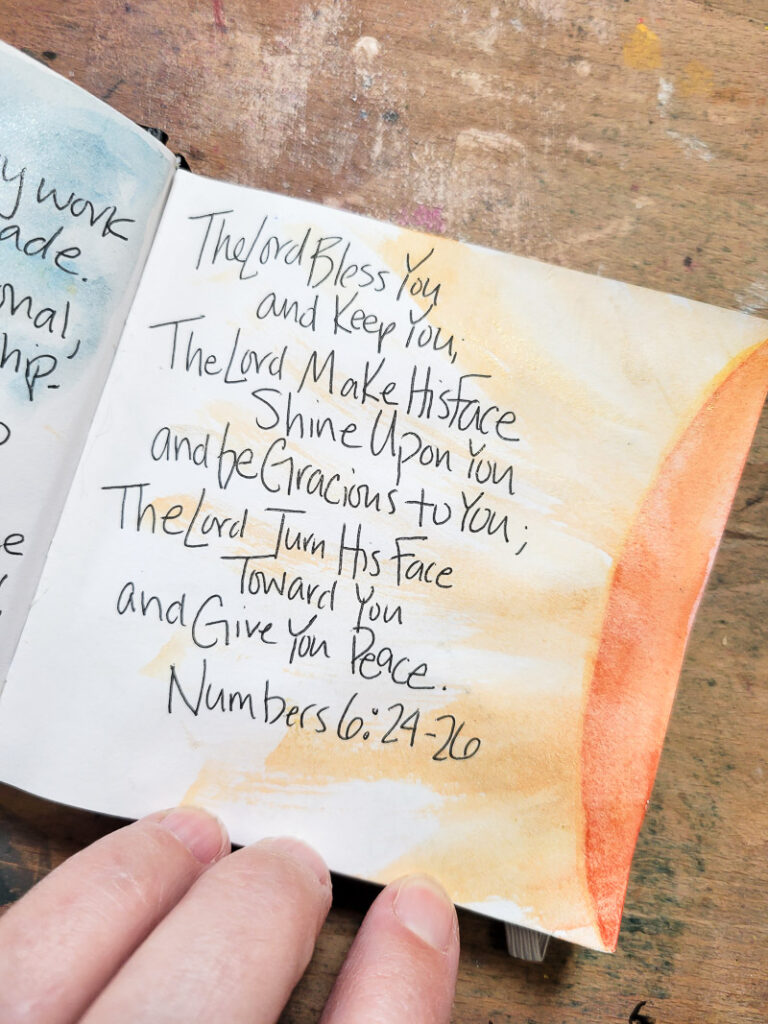 y work
ade.
onal,
hip-
The Lord Bless You
and Keep You;
The Lord Make His Face
Shine Upon You
and be Gracious to You;
The Lord Turn His Face
Toward You
and Give You Peace.
Numbers 6:24-26